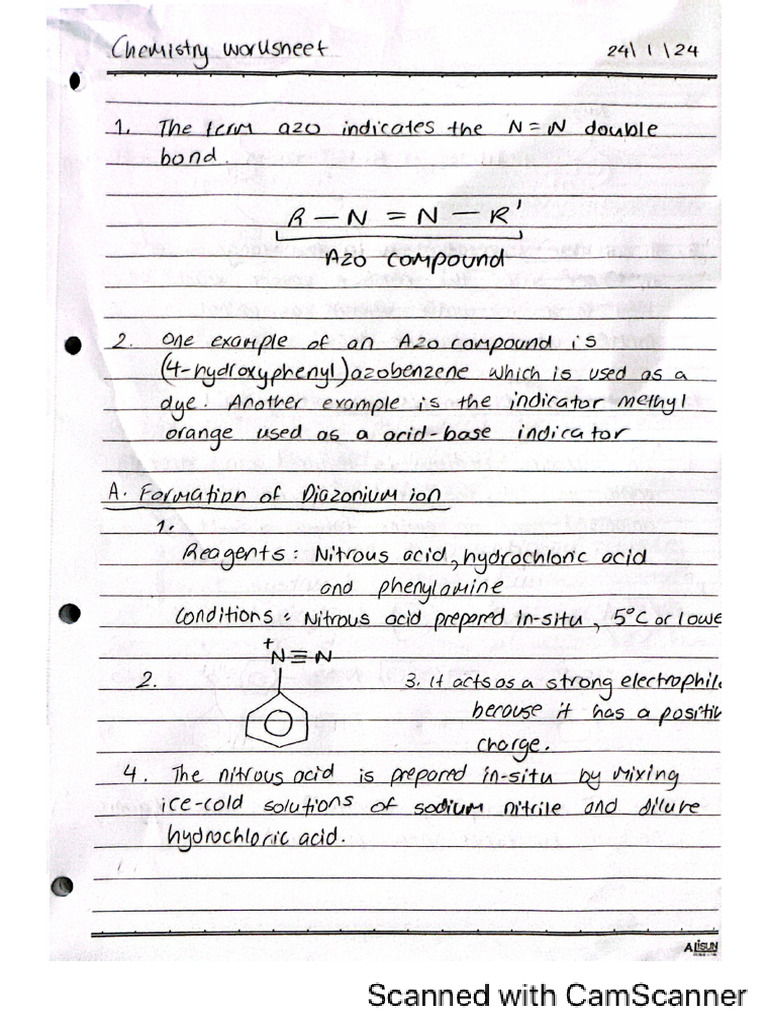 Chemistry worksheet 24\1\24
1. The term azo indicates the N=N double
bond.
R — N = N — R'
Azo compound
2. One example of an Azo compound is
(4-hydroxyphenyl)azobenzene which is used as a
dye. Another example is the indicator methyl
orange used as a acid-base indicator
A. Formation of Diazonium ion
1.
Reagents: Nitrous acid, hydrochloric acid
and phenylamine
Conditions: Nitrous acid prepared in-situ, 5°C or lowe
+
N≡N
2. 3. It acts as a strong electrophile
because it has a positiv
charge.
4. The nitrous acid is prepared in-situ by mixing
ice-cold solutions of sodium nitrile and dilute
hydrochloric acid.
ALISUN
Scanned with CamScanner